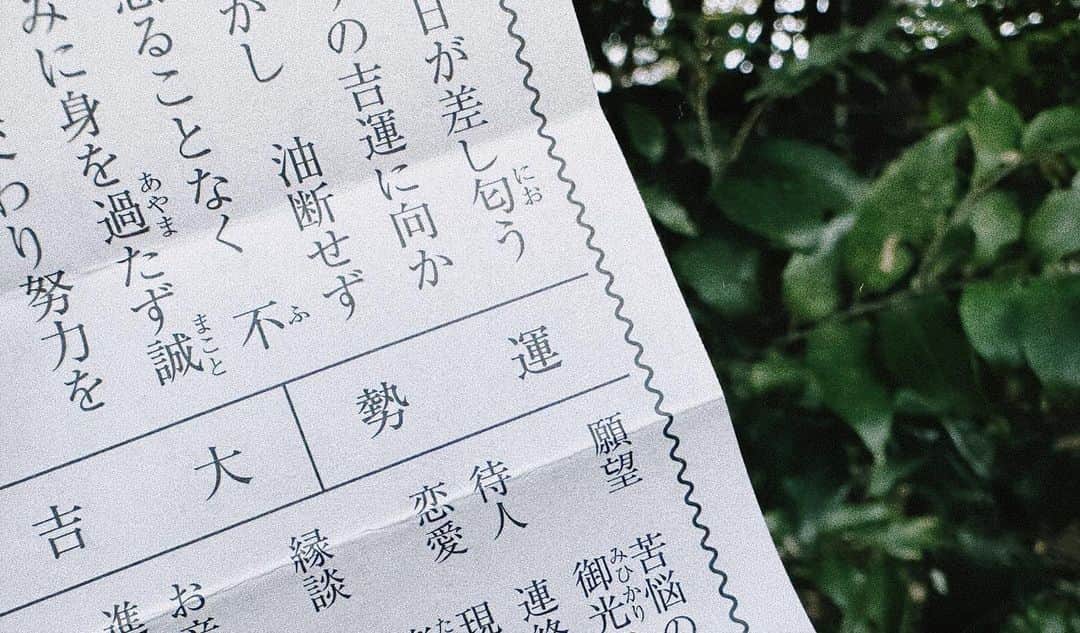 日が差し匂う
にお
の吉運に向か
かし　油断せず
ることなく　不
ふ
みに身を過たず誠
あやま
まこと
わり努力を
運勢
大吉
願望
苦悩の
御光
みひかり
待人
連
恋愛
現
た
縁談
お
進